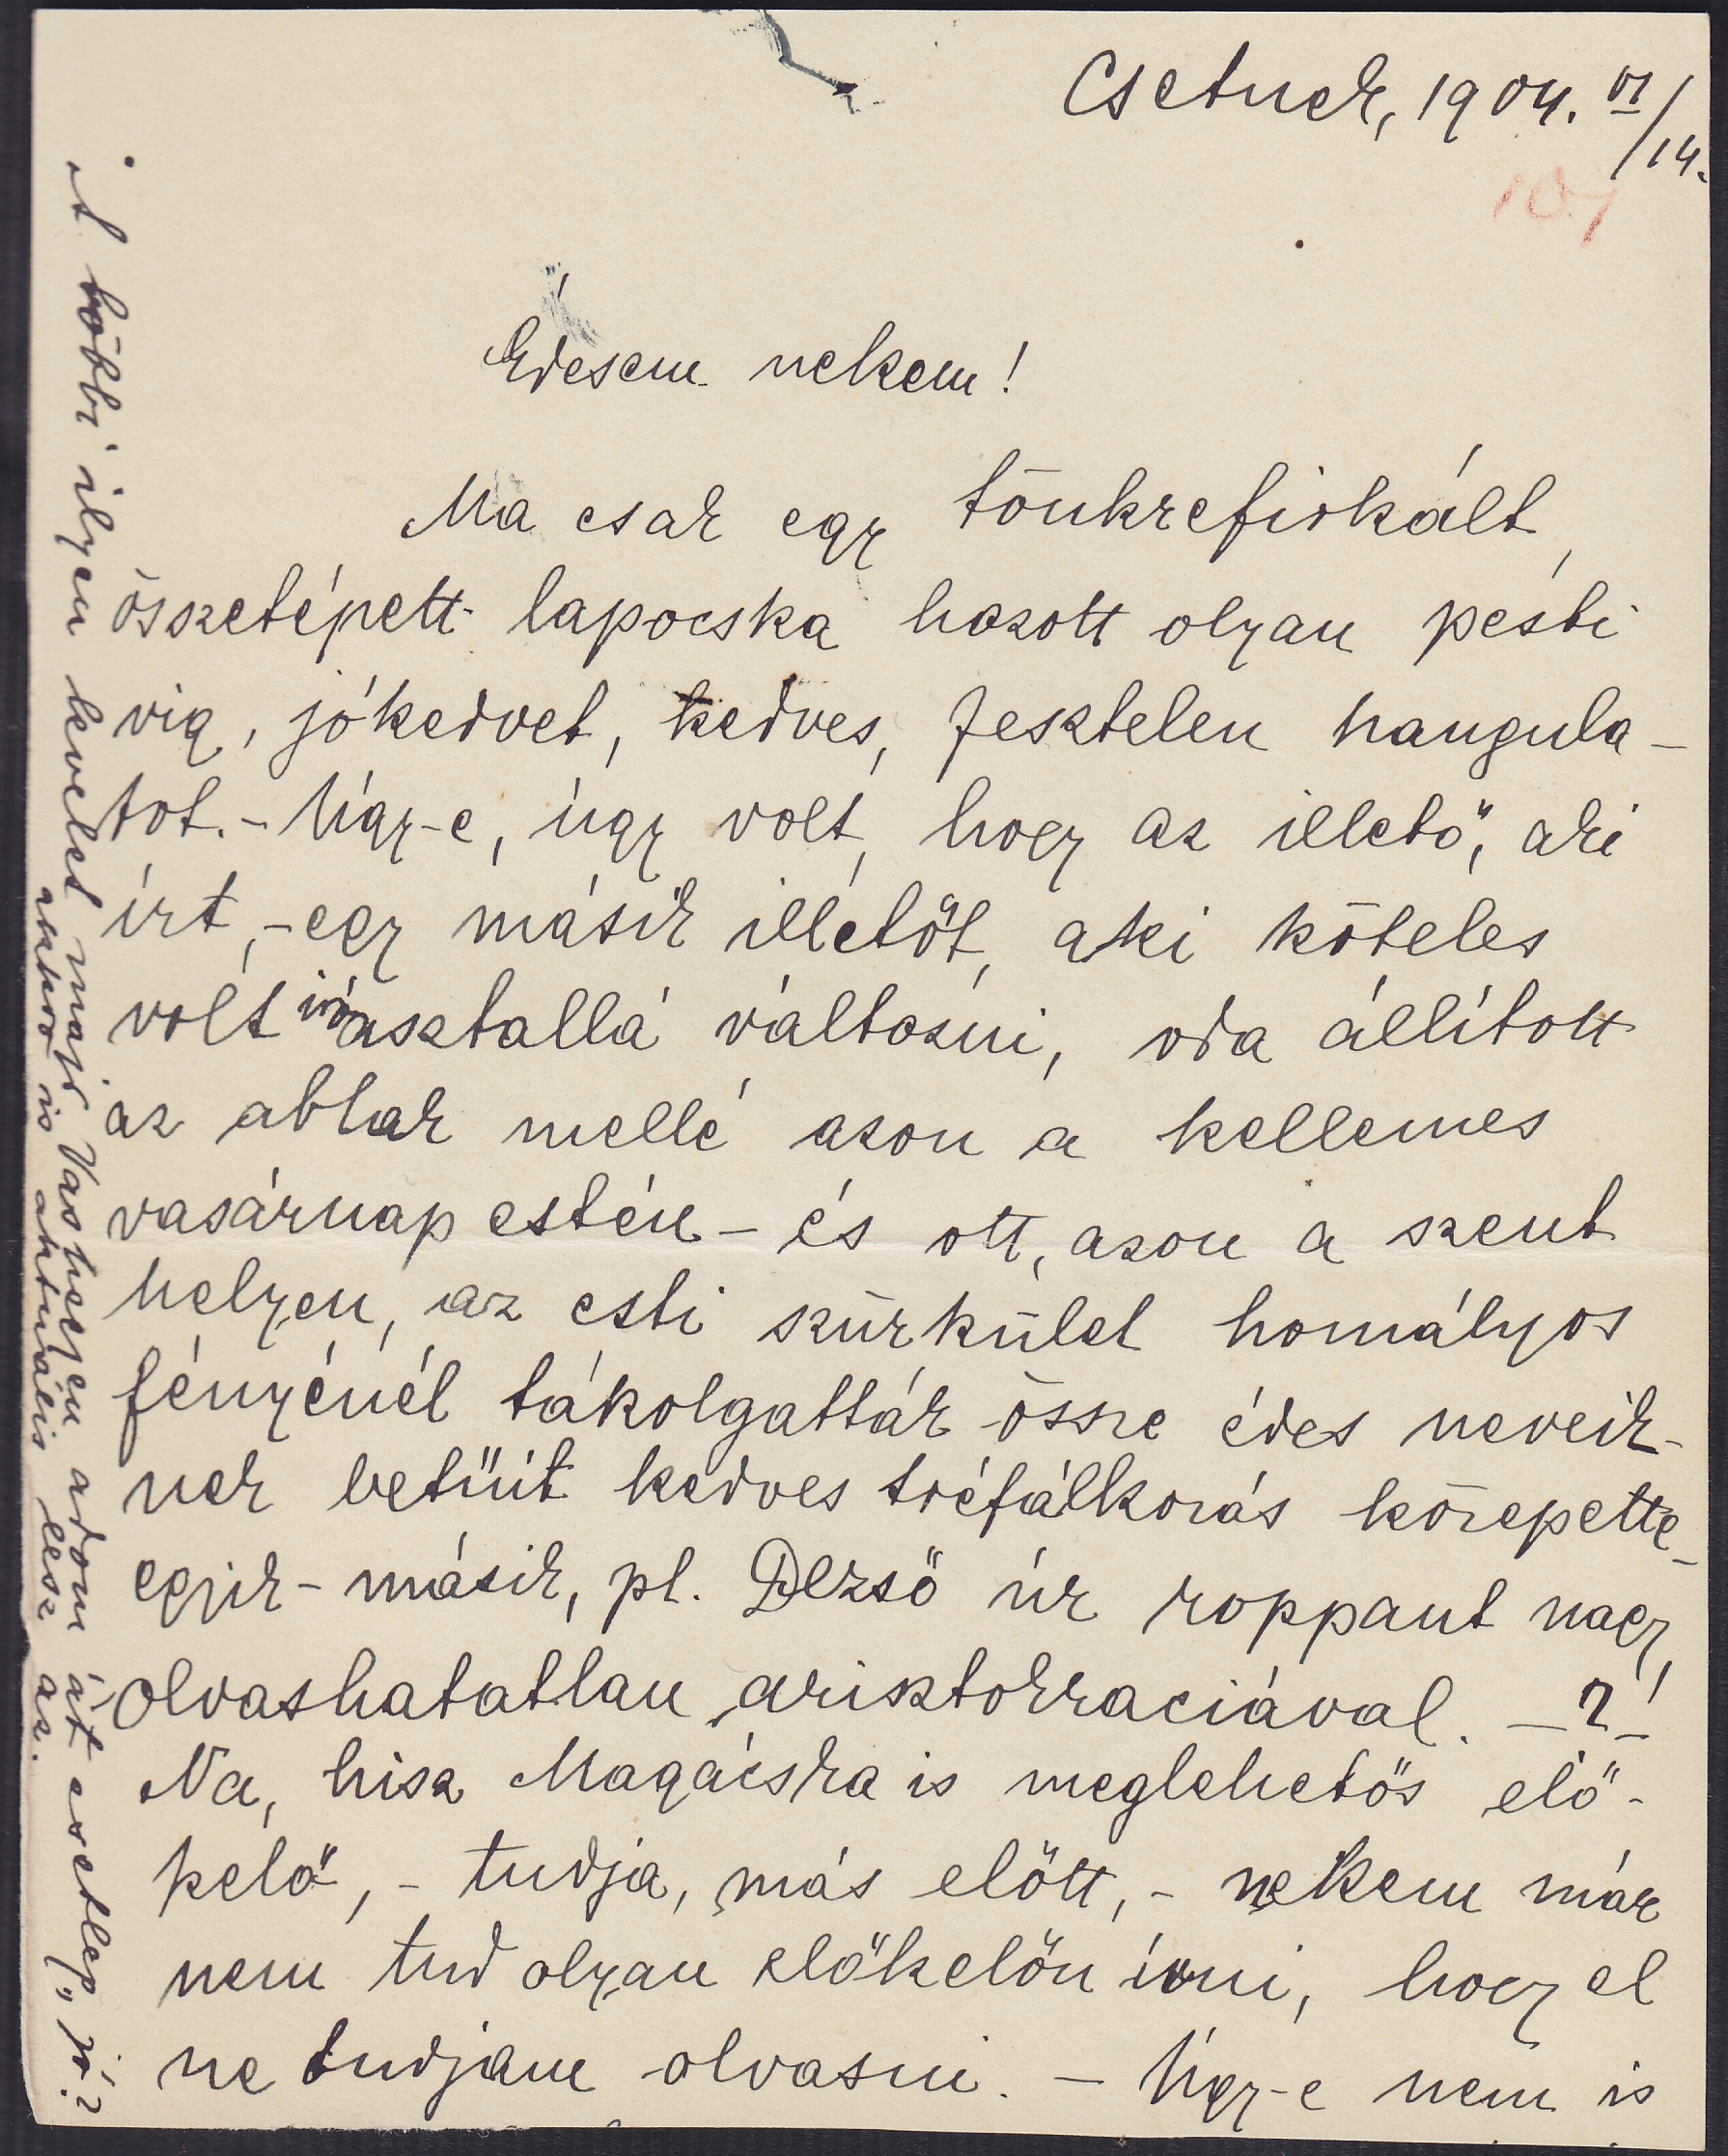 Csetnek, 1904. VI/14.
107
Édesem nekem!
Ma csak egy tönkrefirkált,
összetépett lapocska hozott olyan pesti
vig, jókedvet, kedves, fesztelen hangula-
tot. - Úgy-e, úgy volt, hogy az illető, aki
írt, - egy másik illetőt, aki köteles
volt iróasztallá változni, oda állított
az ablak mellé azon a kellemes
vasárnap estén - és ott, azon a szent
helyen, az esti szürkület homályos
fényénél tákolgatták össze édes neveik-
nek betűit kedves tréfálkozás közepette -
egyik - másik, pl. Dezső úr roppant nagy,
olvashatatlan arisztokraciával. - ? !
Na, hisz Magácska is meglehetős elő-
kelő, - tudja, más előtt, - nekem már
nem tud olyan előkelőn írni, hogy el
ne tudjam olvasni. - Úgy-e nem is
A többi ilyen levelet majd Vashegyen adom át esetleg, jó?
akkor is aktuális lesz az.